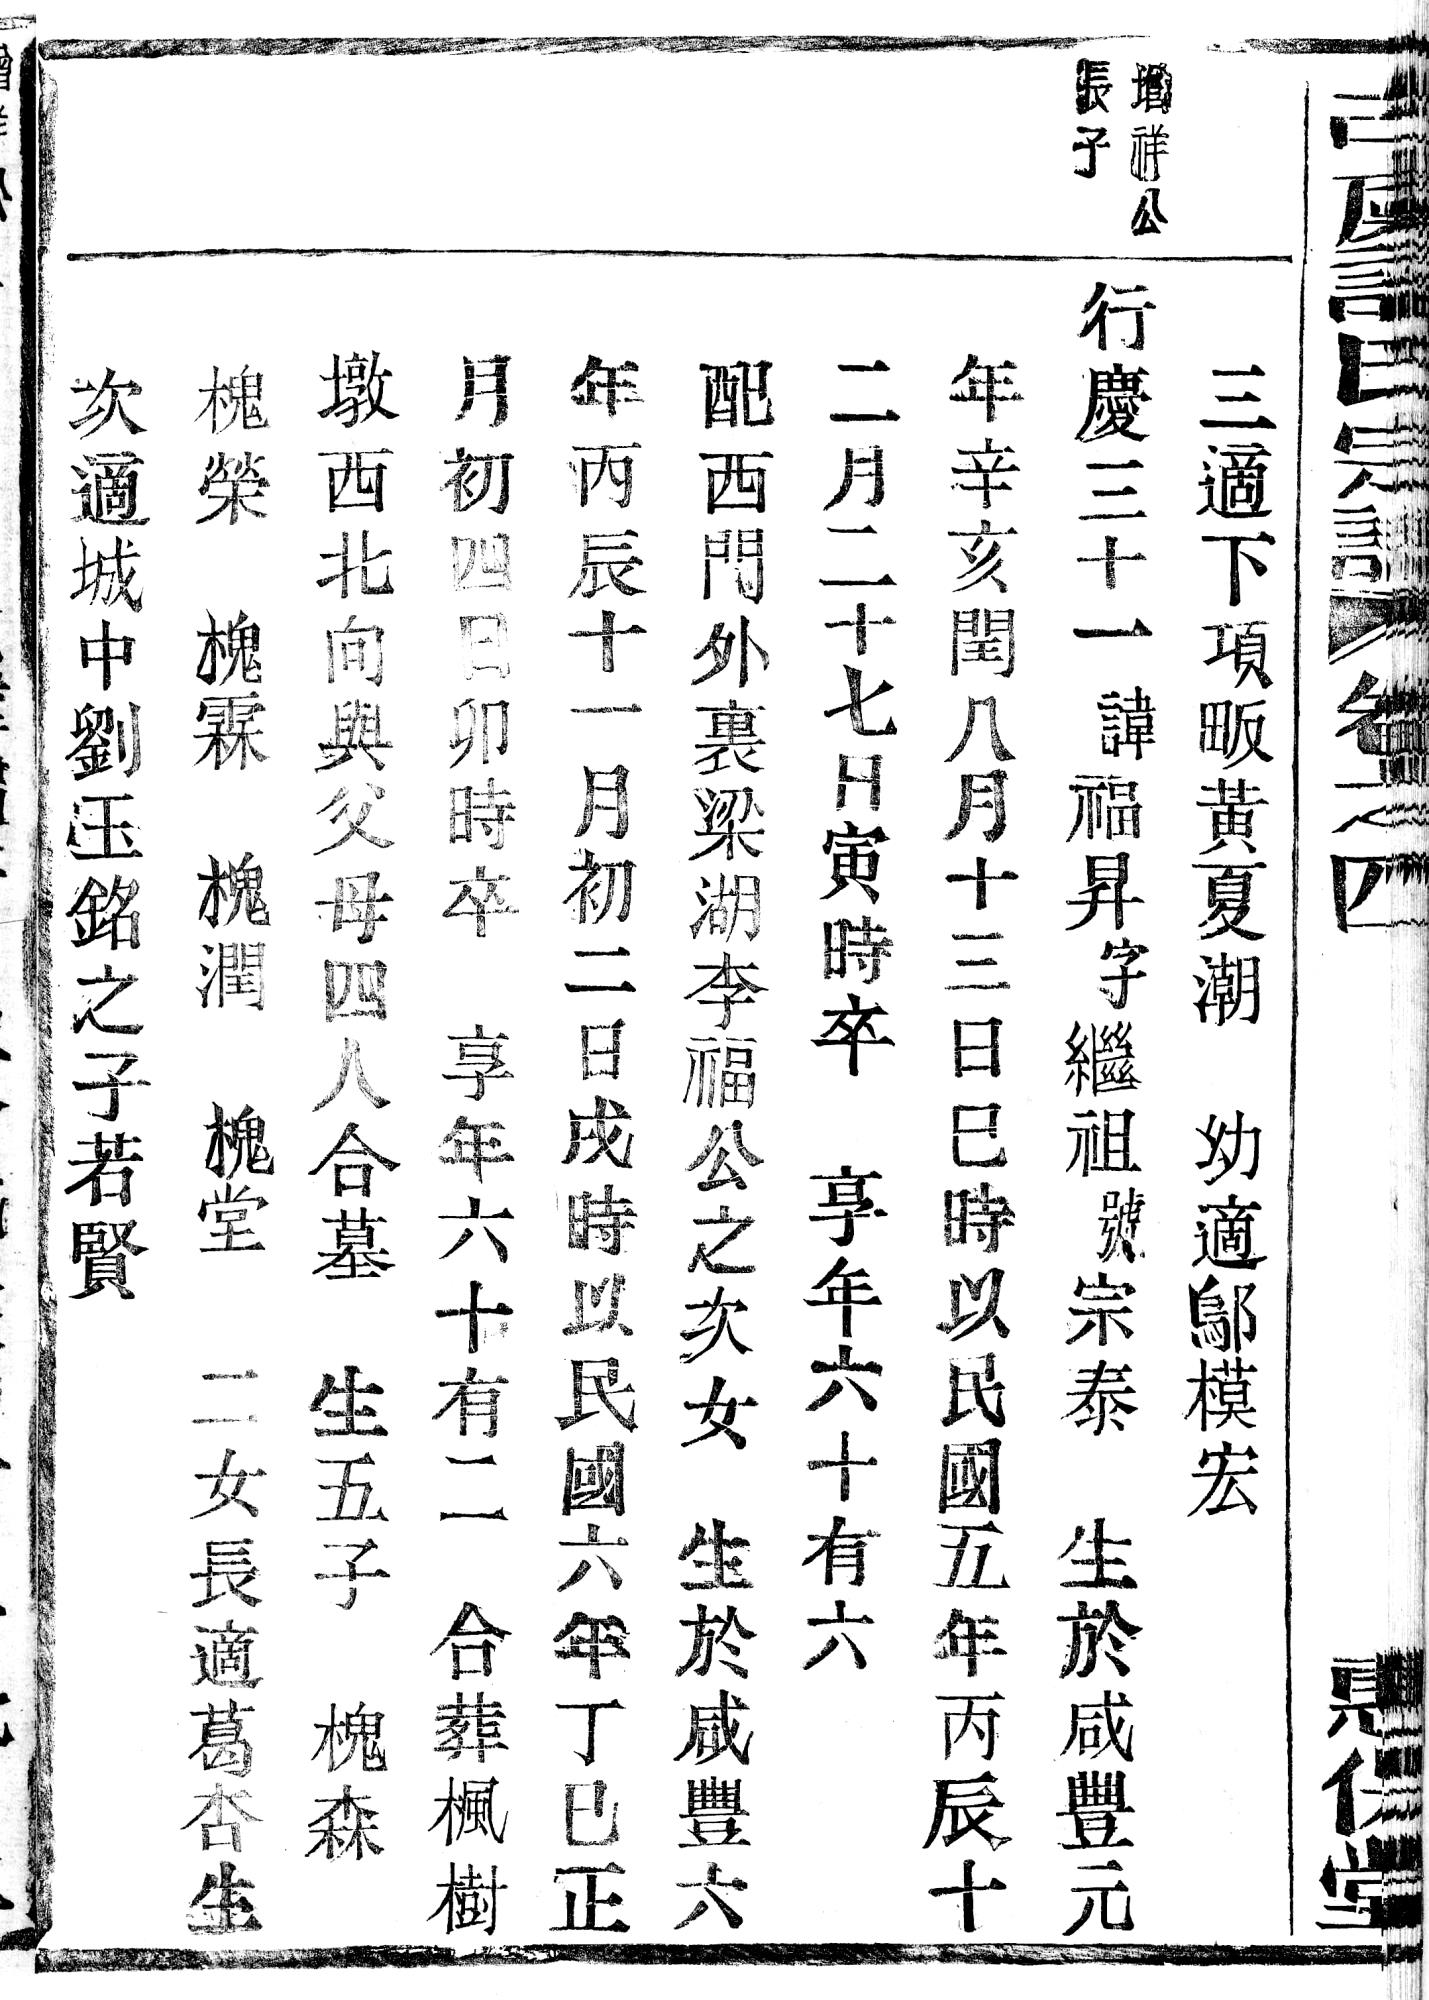 氏宗譜 卷之四
堂
增祥公
長子
三適下項畈黃夏潮 幼適鄔模宏
行慶三十一 諱福昇字繼祖號宗泰 生於咸豐元
年辛亥閏八月十三日巳時以民國五年丙辰十
二月二十七日寅時卒 享年六十有六
配西門外裏梁湖李福公之次女 生於咸豐六
年丙辰十一月初二日戌時以民國六年丁巳正
月初四日卯時卒 享年六十有二 合葬楓樹
墩西北向與父母四人合墓 生五子 槐森
槐榮 槐霖 槐潤 槐堂 二女長適葛杏生
次適城中劉玉銘之子若賢